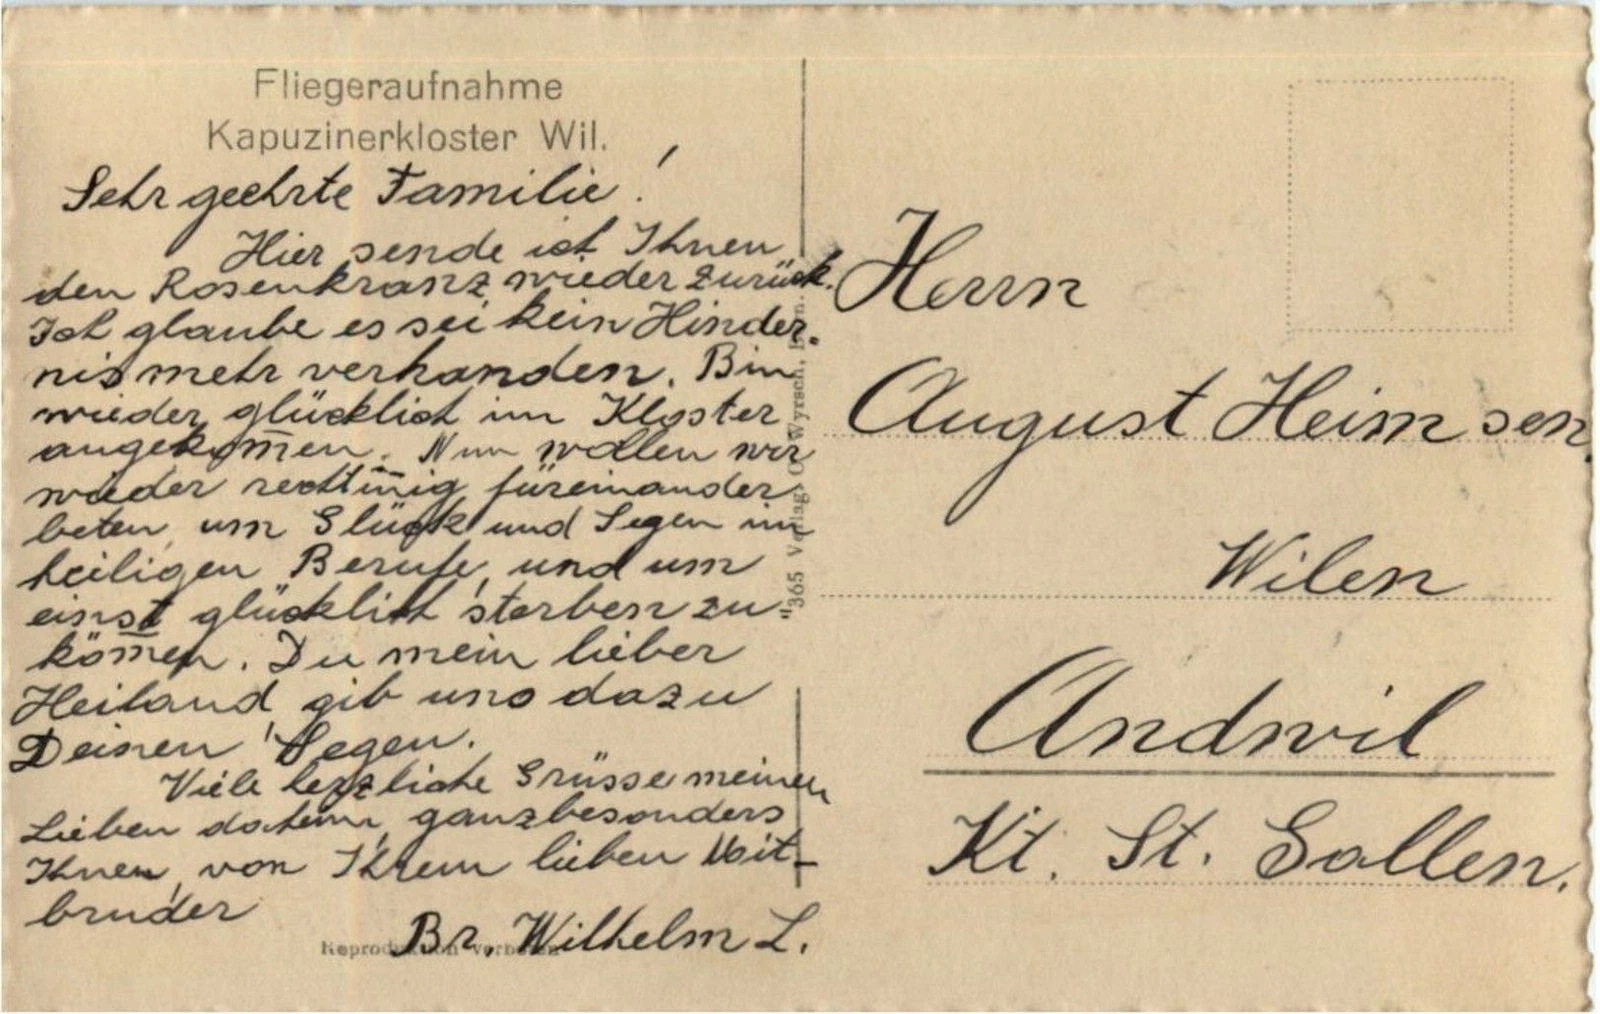 Fliegeraufnahme
Kapuzinerkloster Wil.
Sehr geehrte Familie!
Hier sende ich Ihnen
den Rosenkranz wieder zurück.
Ich glaube es sei kein Hinder-
nis mehr verhanden. Bin
wieder glücklich im Kloster
angekom̅en. Nun wollen wir
wieder füreinander
beten, um Glück und Segen im
heiligen Berufe, und um
einst glücklich sterben zu
köm̅en. Du mein lieber
Heiland, gib uns dazu
Deinen Segen.
Viele herzliche Grüsse meinen
Lieben daheim, ganz besonders
Ihnen, von Ihrem lieben Mit-
bruder
Br. Wilhelm L.
Reproduktion verboten
365 Verlag: O. Wyrsch,
Herrn
August Heim sen.
Wilen
Andwil
Kt. St. Gallen.